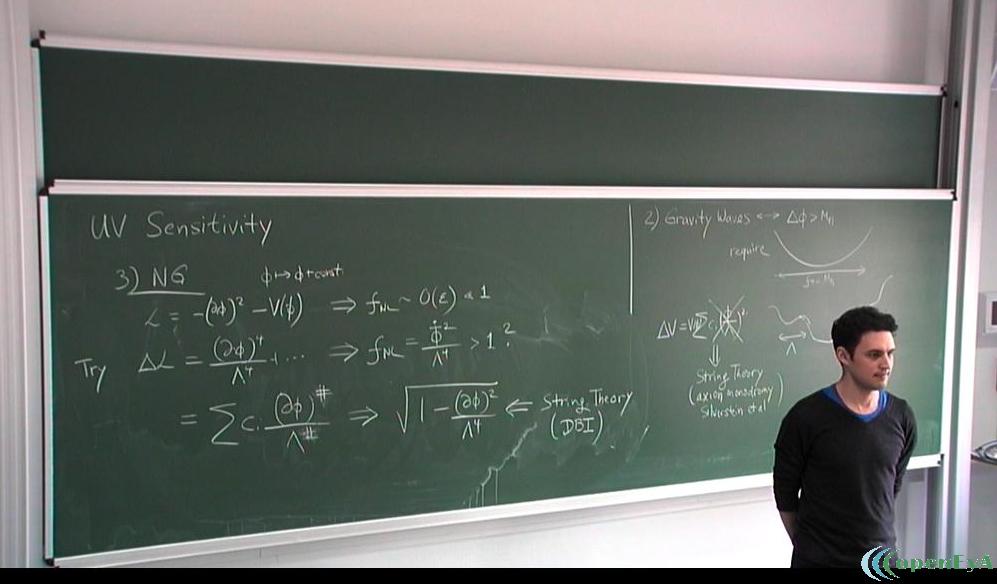 UV Sensitivity
3) NG
ϕ ↦ ϕ + const
ℒ = -(∂ϕ)² - V(ϕ) ⇒ f_NL ~ O(ε) < 1
Try Δℒ = (∂ϕ)⁴/Λ⁴ + ... ⇒ f_NL = ϕ̇²/Λ⁴ > 1 ?
= Σ cᵢ (∂ϕ)^#/Λ^# ⇒ √(1 - (∂ϕ)²/Λ⁴) ⇐ String Theory
(DBI)
2) Gravity Waves ↔ Δϕ > M_Pl
require
Λ
⇓
String Theory
(axion monodromy
Silverstein et al)
openEyA